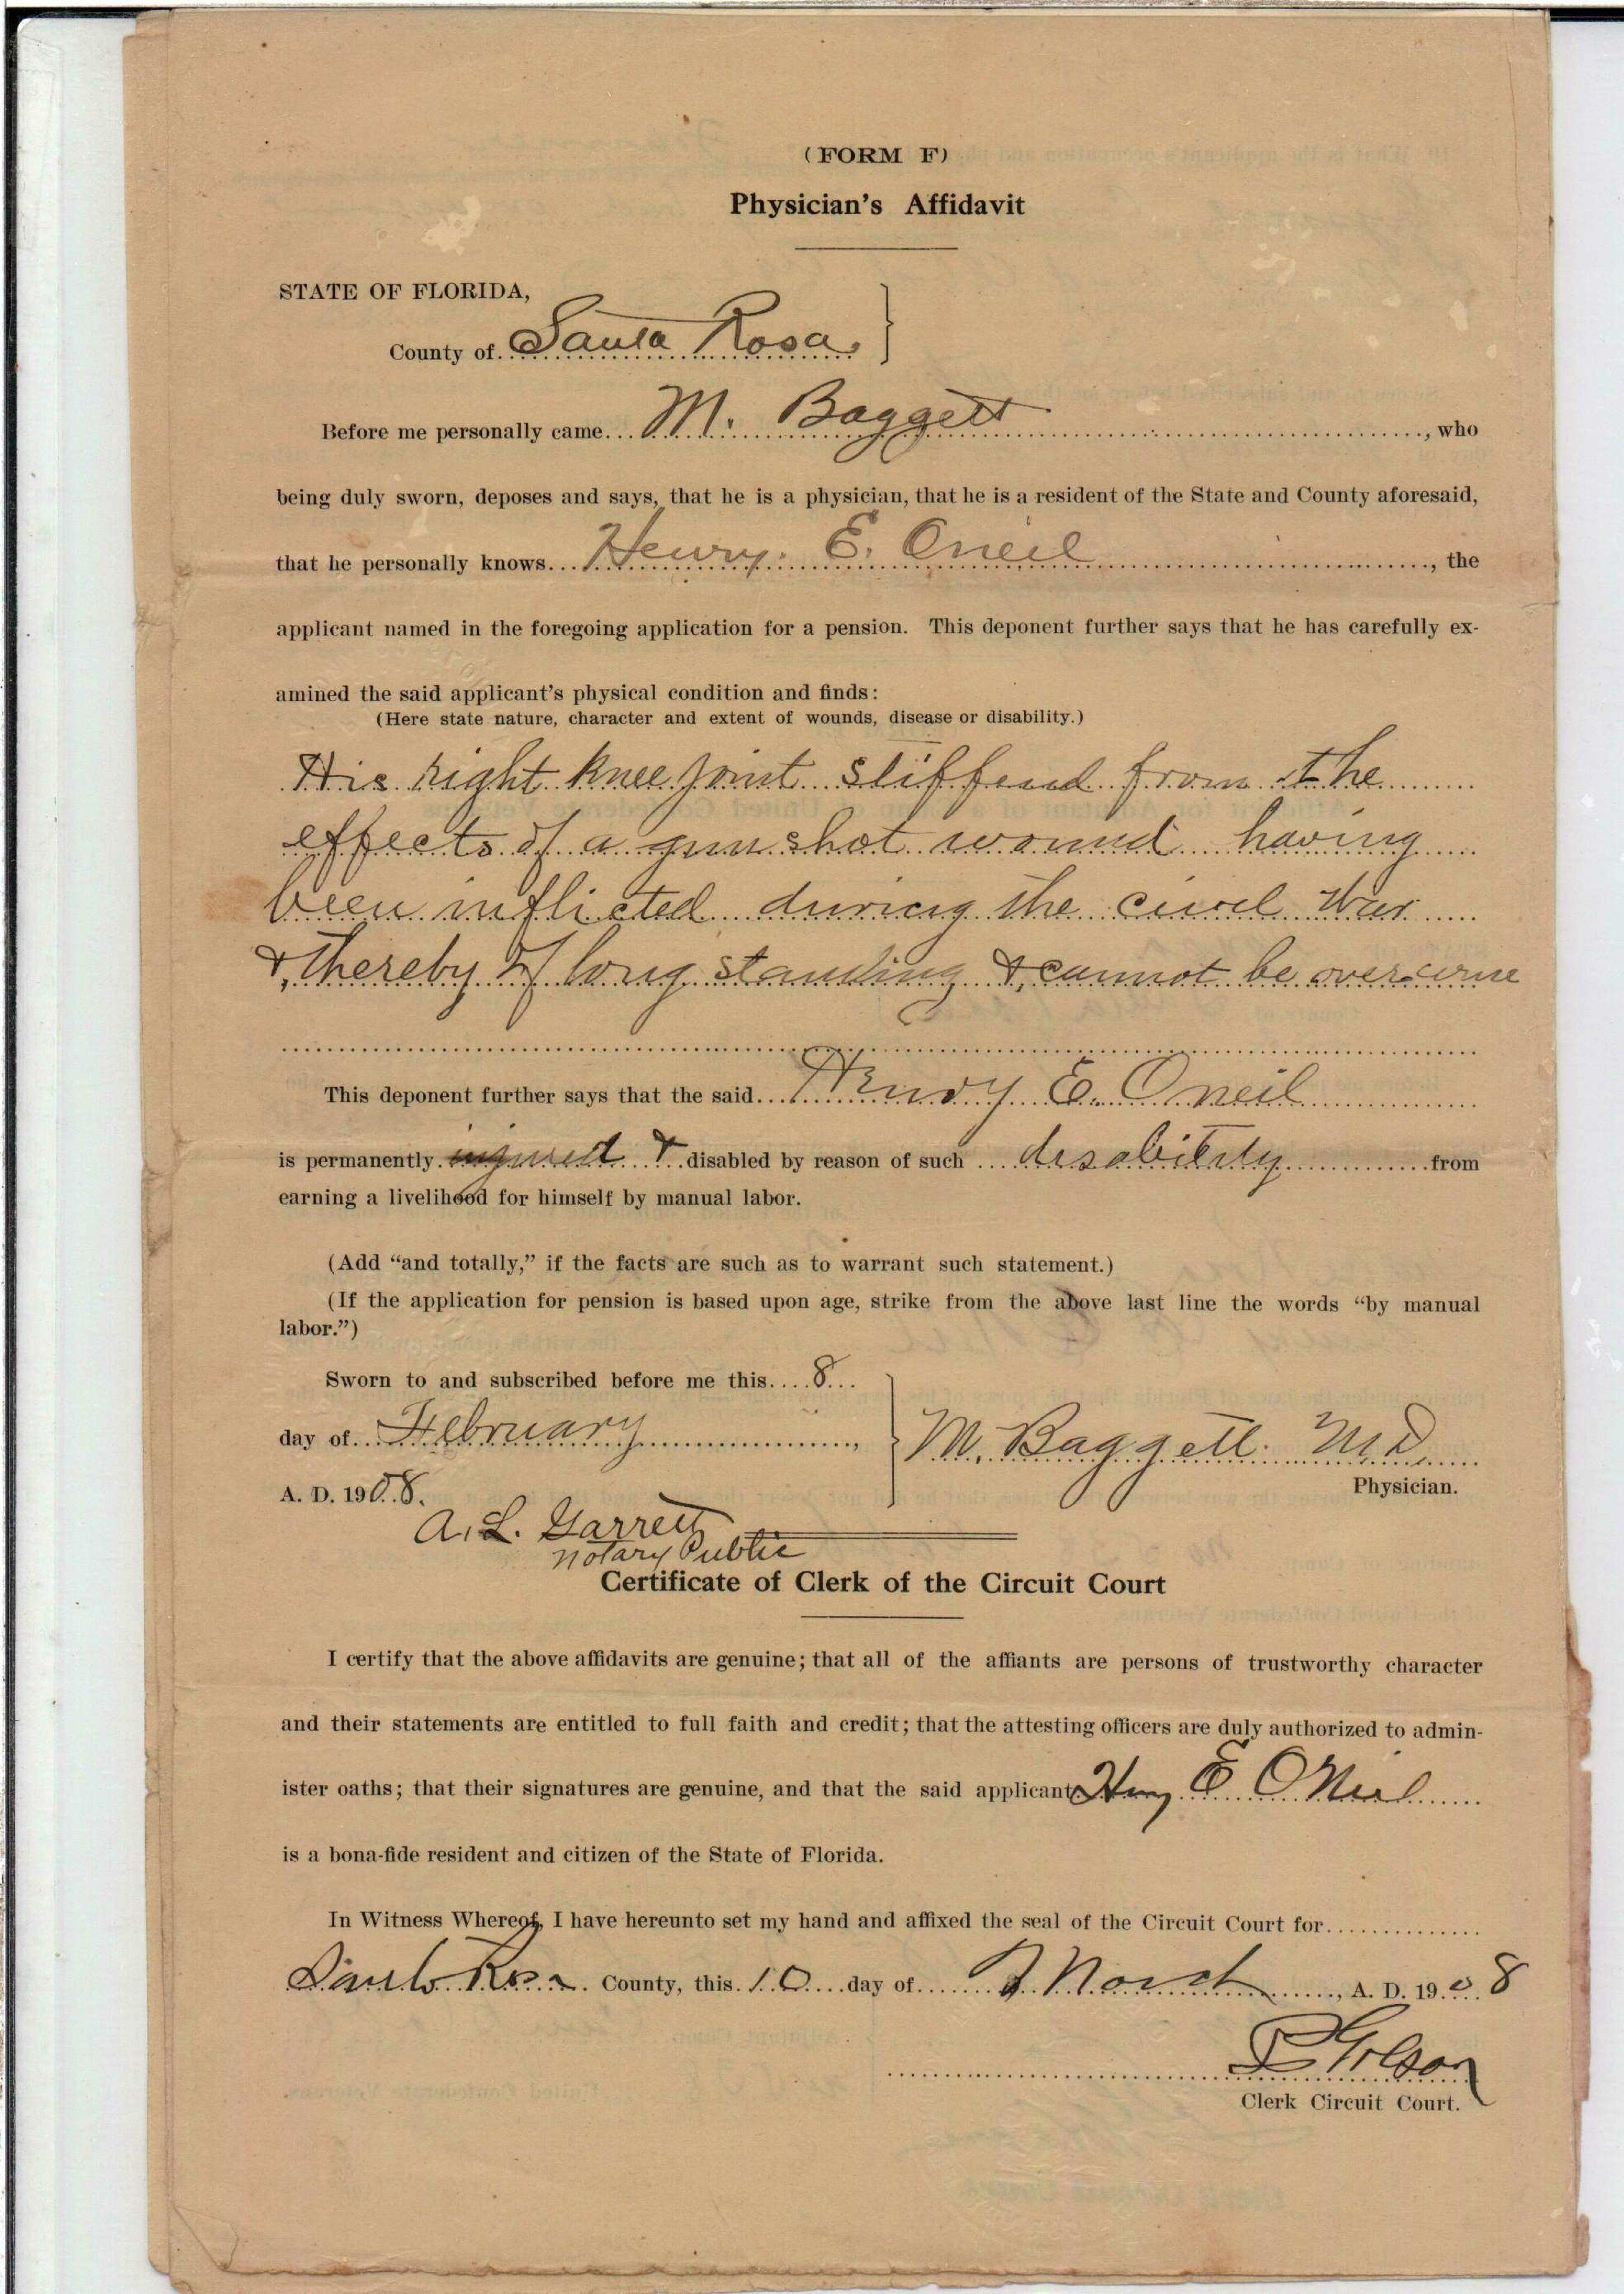 (FORM F)
Physician's Affidavit
STATE OF FLORIDA,
County of Santa Rosa
Before me personally came M. Baggett, who
being duly sworn, deposes and says, that he is a physician, that he is a resident of the State and County aforesaid,
that he personally knows Henry. E. Oneil, the
applicant named in the foregoing application for a pension. This deponent further says that he has carefully ex-
amined the said applicant's physical condition and finds:
(Here state nature, character and extent of wounds, disease or disability.)
His right knee joint stiffend from the
effects of a gun shot wound having
been inflicted during the civil War
& thereby of long standing & cannot be overcome
This deponent further says that the said Henry E. Oneil
is permanently injured & disabled by reason of such disability from
earning a livelihood for himself by manual labor.
(Add "and totally," if the facts are such as to warrant such statement.)
(If the application for pension is based upon age, strike from the above last line the words "by manual
labor.")
Sworn to and subscribed before me this 8
day of February,
M. Baggett. MD
Physician.
A. D. 1908.
A. L. Garrett
Notary Public
Certificate of Clerk of the Circuit Court
I certify that the above affidavits are genuine; that all of the affiants are persons of trustworthy character
and their statements are entitled to full faith and credit; that the attesting officers are duly authorized to admin-
ister oaths; that their signatures are genuine, and that the said applicant Henry E O Neil
is a bona-fide resident and citizen of the State of Florida.
In Witness Whereof, I have hereunto set my hand and affixed the seal of the Circuit Court for
Santa Rosa County, this 10 day of March, A. D. 1908
Golson
Clerk Circuit Court.